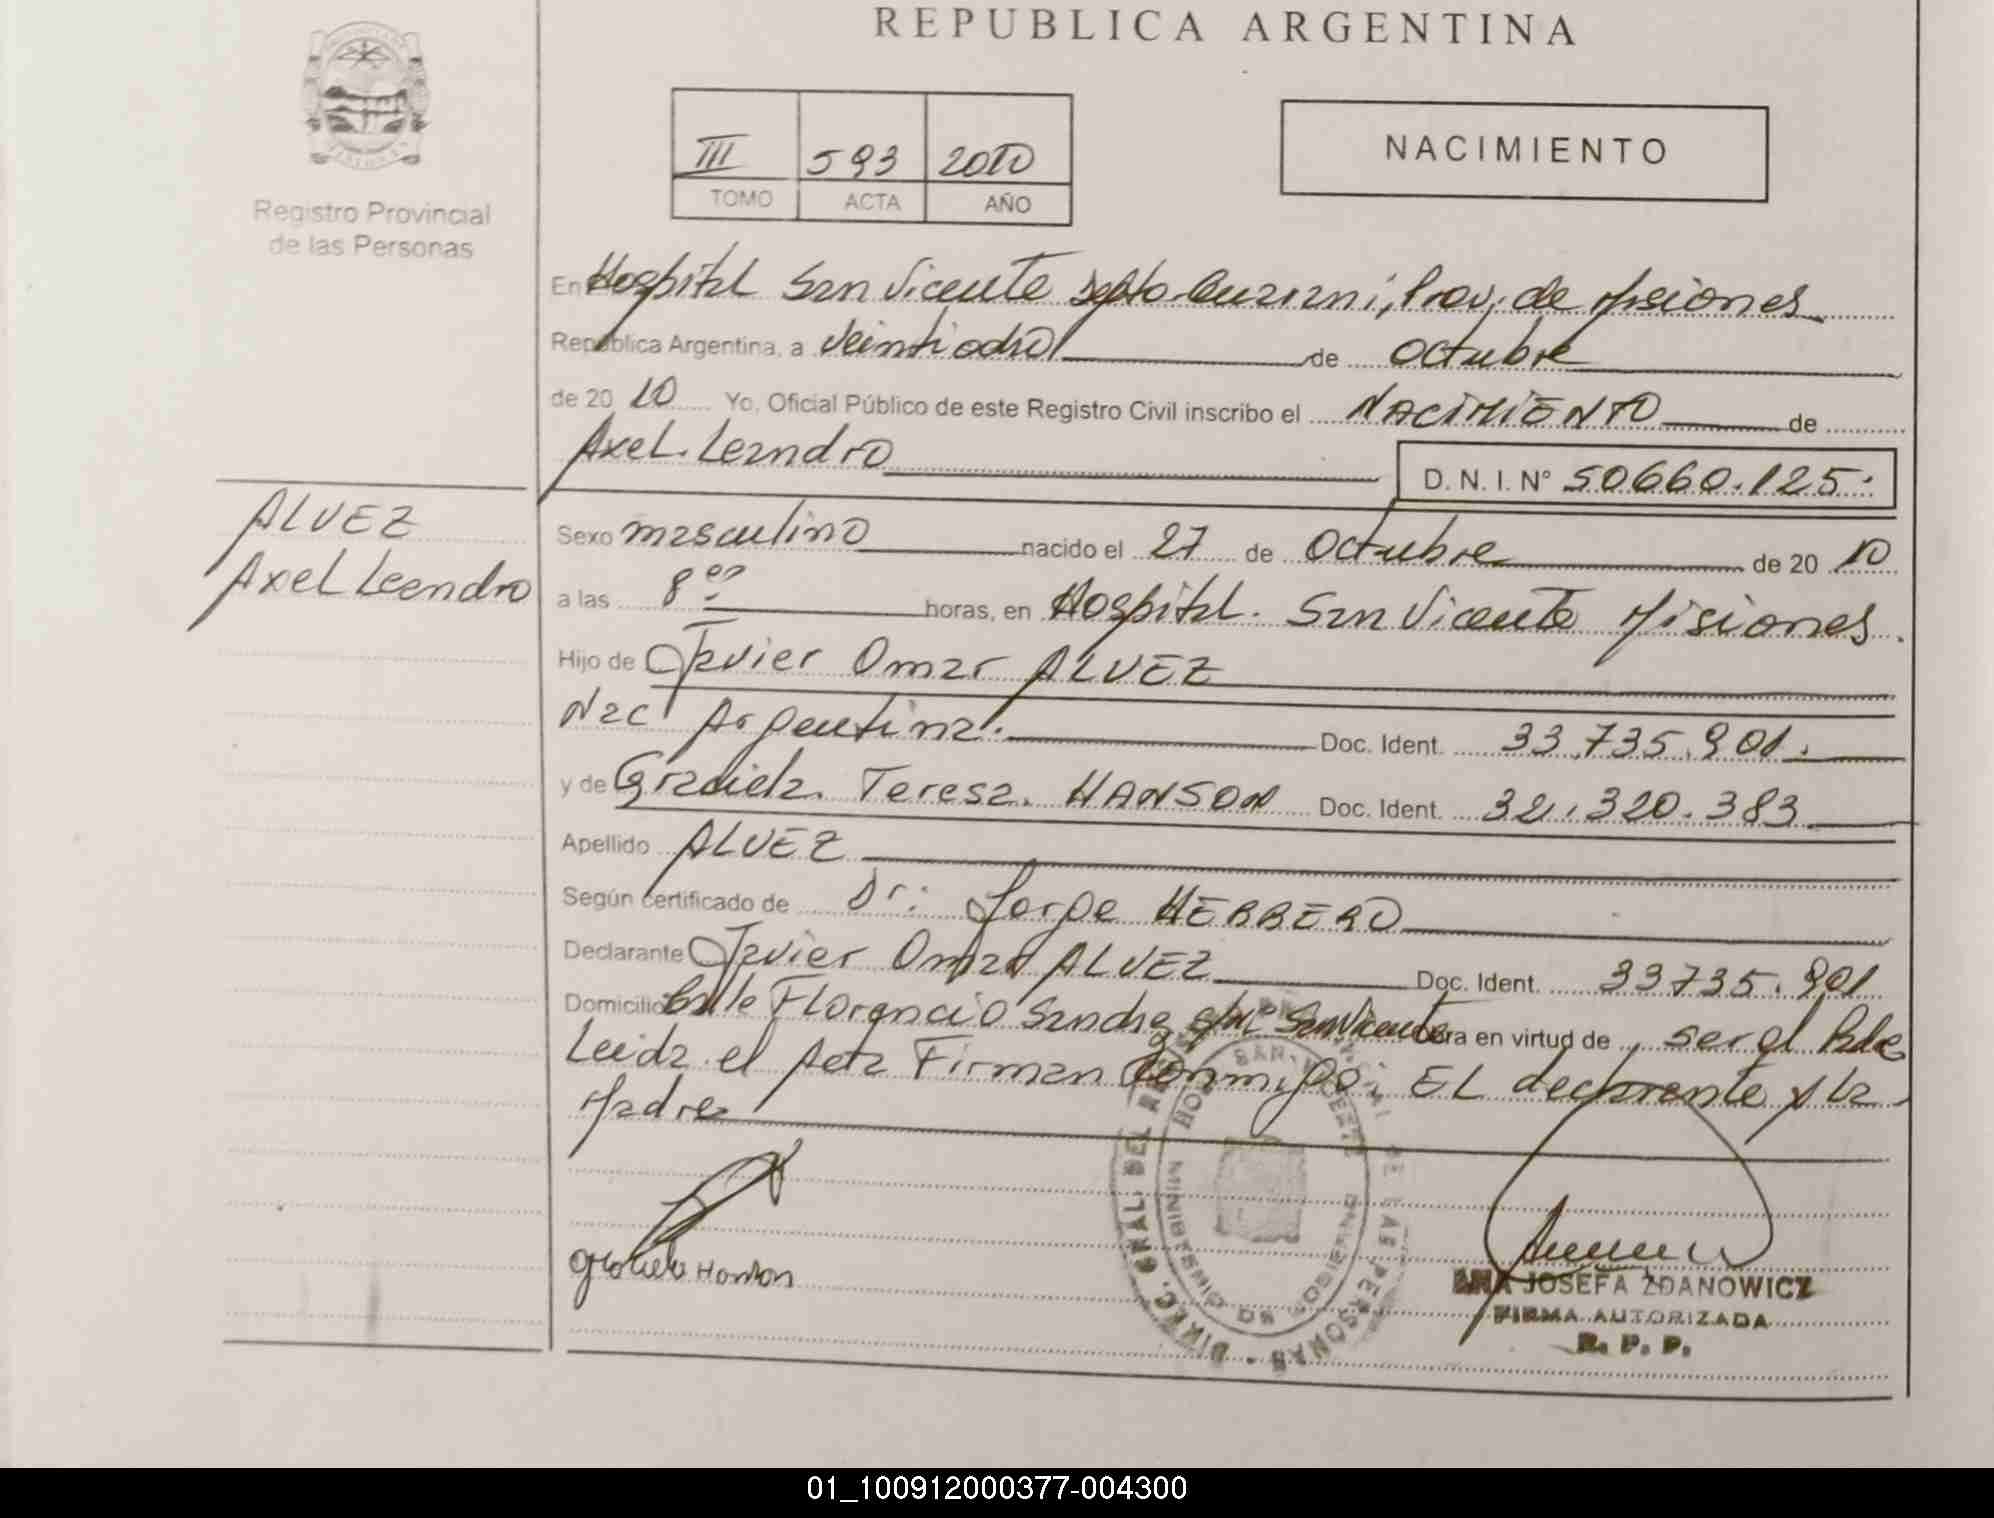 REPUBLICA ARGENTINA
Registro Provincial
de las Personas
III 593 2010
TOMO ACTA AÑO
NACIMIENTO
En Hospital San Vicente Depto Guarani, Prov. de Misiones
República Argentina, a veintiocho de octubre
de 20 10 Yo, Oficial Público de este Registro Civil inscribo el NACIMIENTO de
Axel Leandro D. N. I. Nº 50660.125.
ALVEZ
Axel Leandro
Sexo masculino nacido el 27 de Octubre de 20 10
a las 8 00 horas, en Hospital San Vicente Misiones.
Hijo de Javier Omar ALVEZ
Nac Argentina. Doc. Ident. 33.735.901.
y de Graciela Teresa HANSON Doc. Ident. 32.320.383
Apellido ALVEZ
Según certificado de Dr: Jorge HERRERO
Declarante Javier Omar ALVEZ Doc. Ident. 33735.901
Domicilio Calle Florencio Sanchez s/Nº San Vicente Obra en virtud de ser el Padre
Leida el Acta Firman Conmigo. EL declarante y la
Madre
Graciela Hanson
DIREC. GRAL. DEL DE LAS PERSONAS
HOSP. SAN VICENTE
ANA JOSEFA ZDANOWICZ
FIRMA AUTORIZADA
R. P. P.
01_100912000377-004300